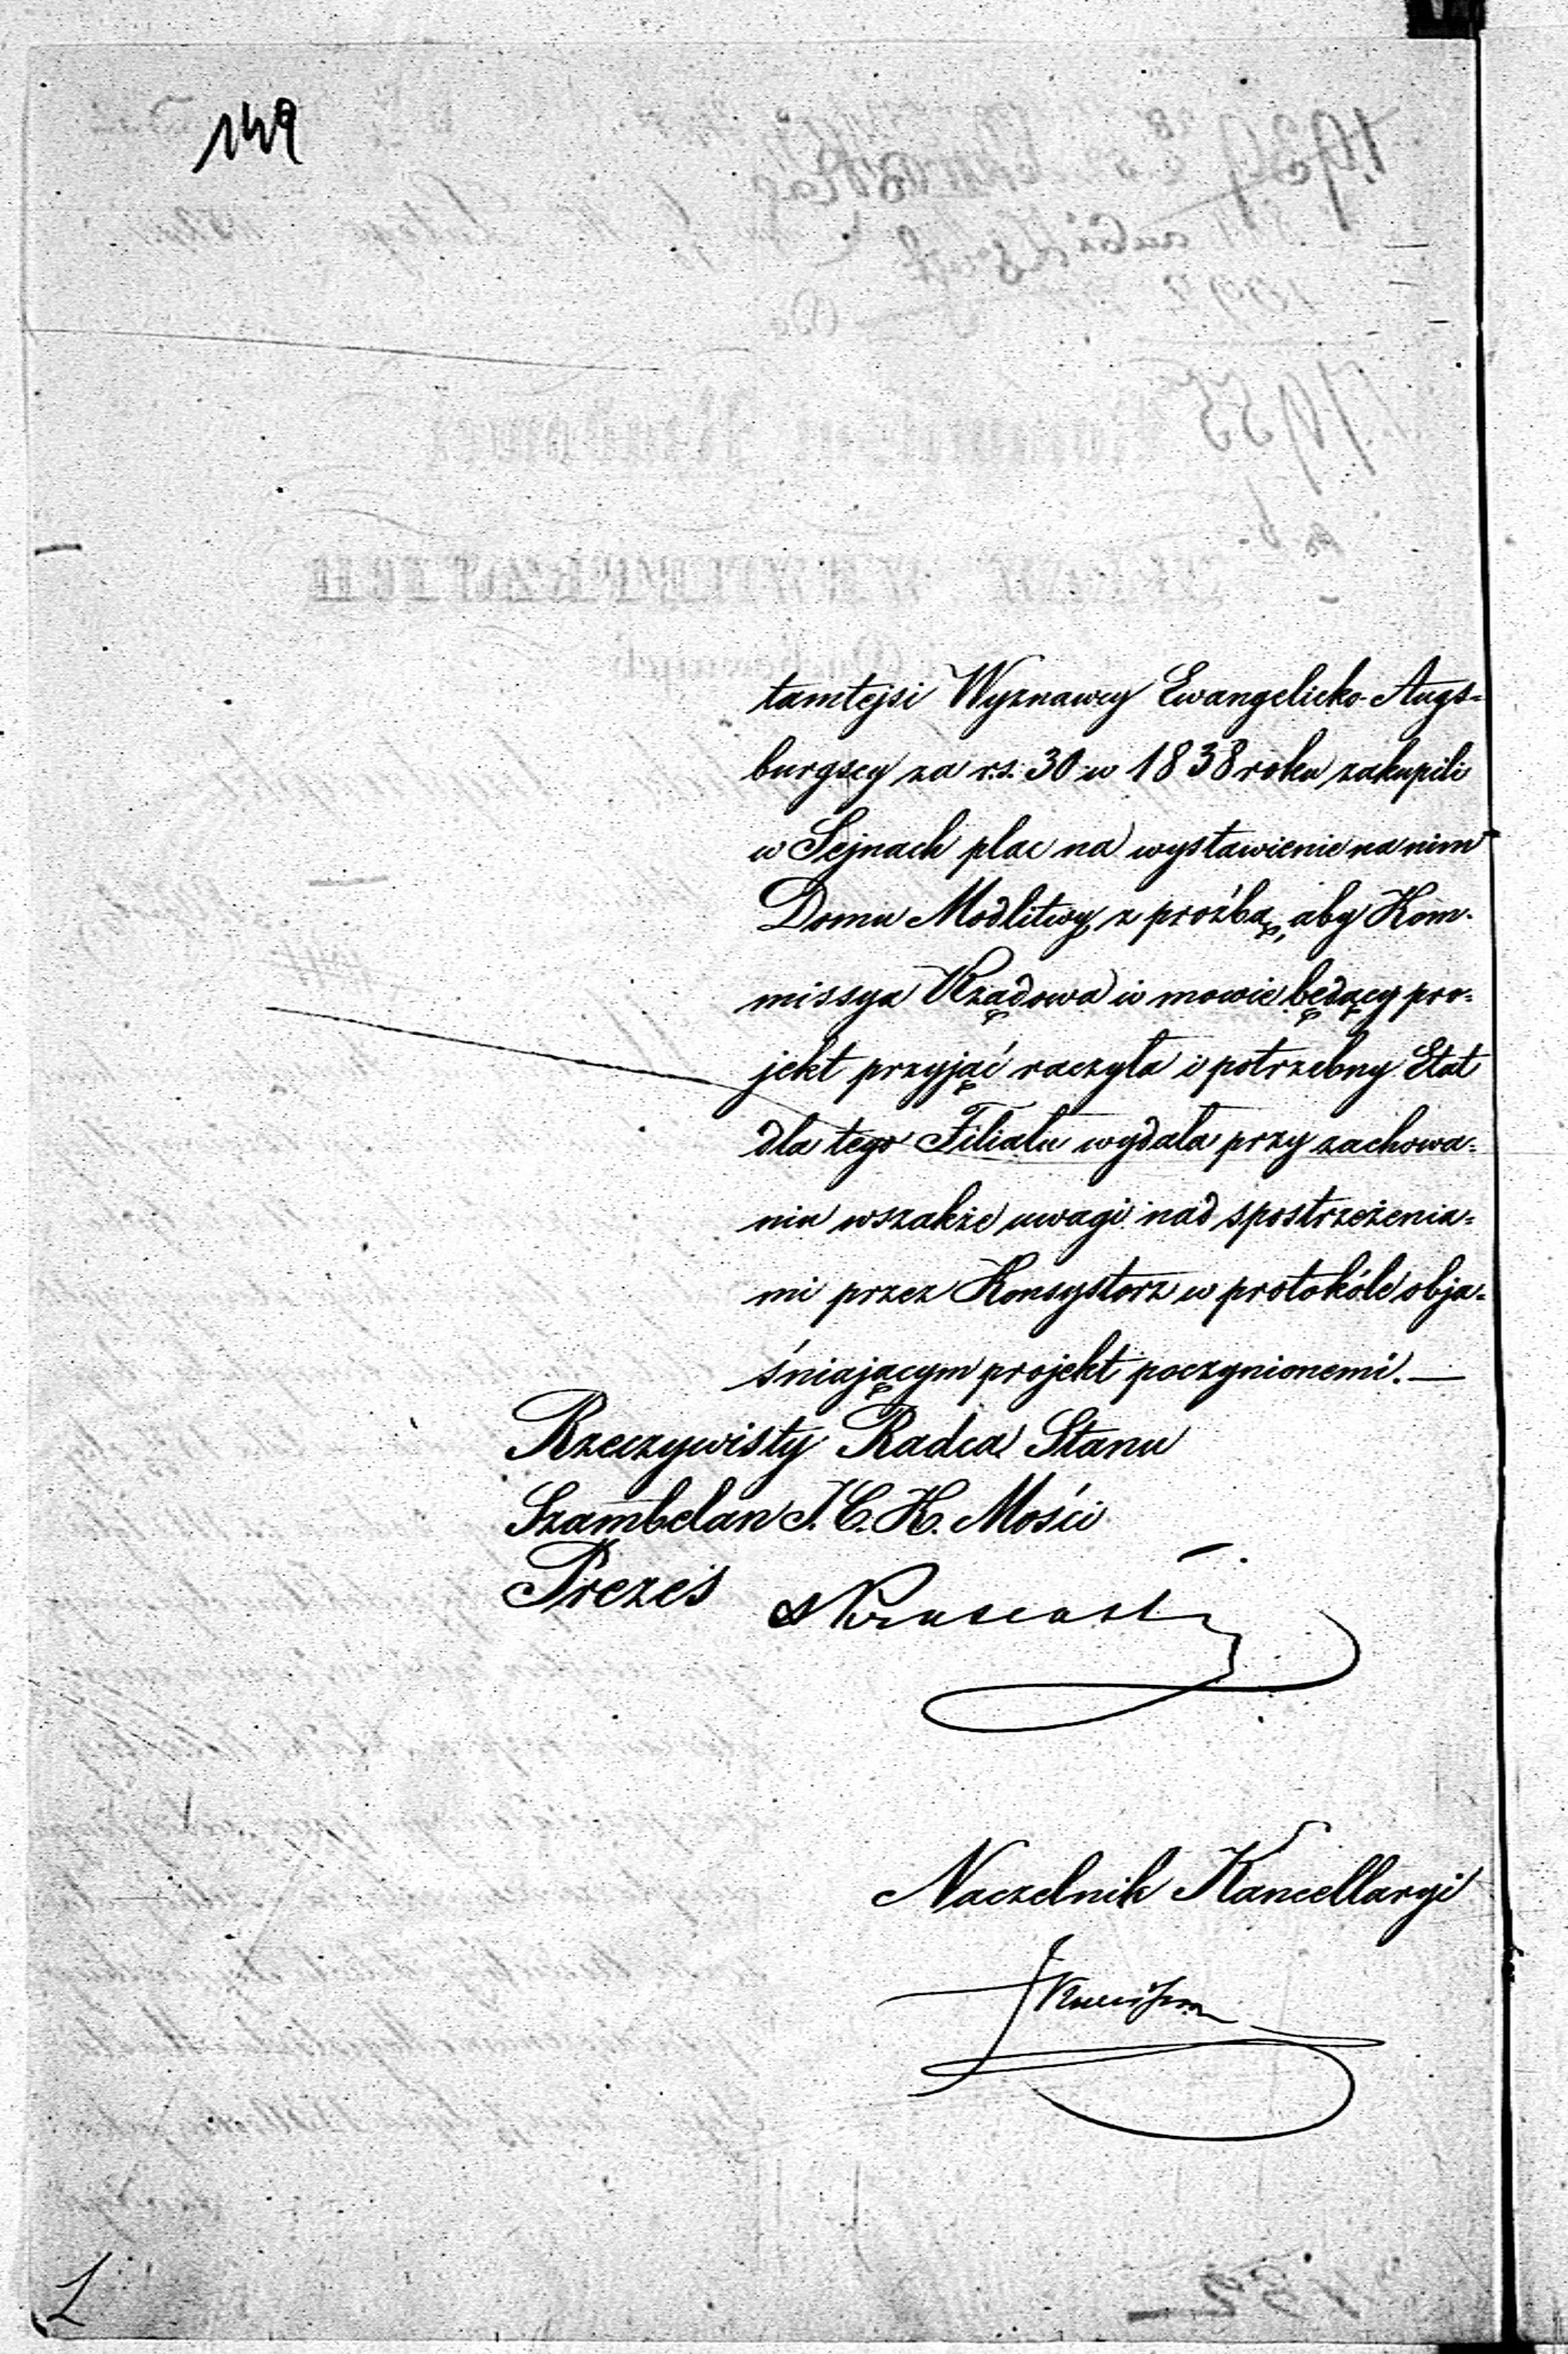 149
tamtejsi Wyznawcy Ewangelicko-Augs=
burgscy za r.s. 30 w 1838 roku zakupili
w Sejnach plac na wystawienie na nim
Domu Modlitwy, z proźbą, aby Kom-
missya Rządowa w mowie będący pro-
jekt przyjąć raczyła i potrzebny Etat
dla tego Filialu wydała przy zachowa-
niu wszakże uwagi nad spostrzeżenia-
mi przez Konsystorz w protokóle obja-
śniającym projekt poczynionemi. —
Rzeczywisty Radca Stanu
Szambelan J. C. K. Mości
Prezes
Naczelnik Kancellaryi